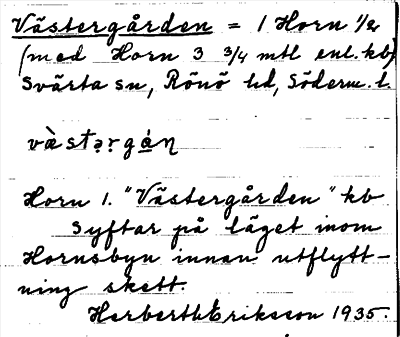 Västergården = 1 Horn 1/2
(med Horn 3 3/4 mtl enl. kb)
Svärta sn, Rönö hd, Söderm. l.
västərgán
Horn 1. "Västergården" kb
Syftar på läget inom
Hornsbyn innan utflytt-
ning skett.
Herberth Eriksson 1935.